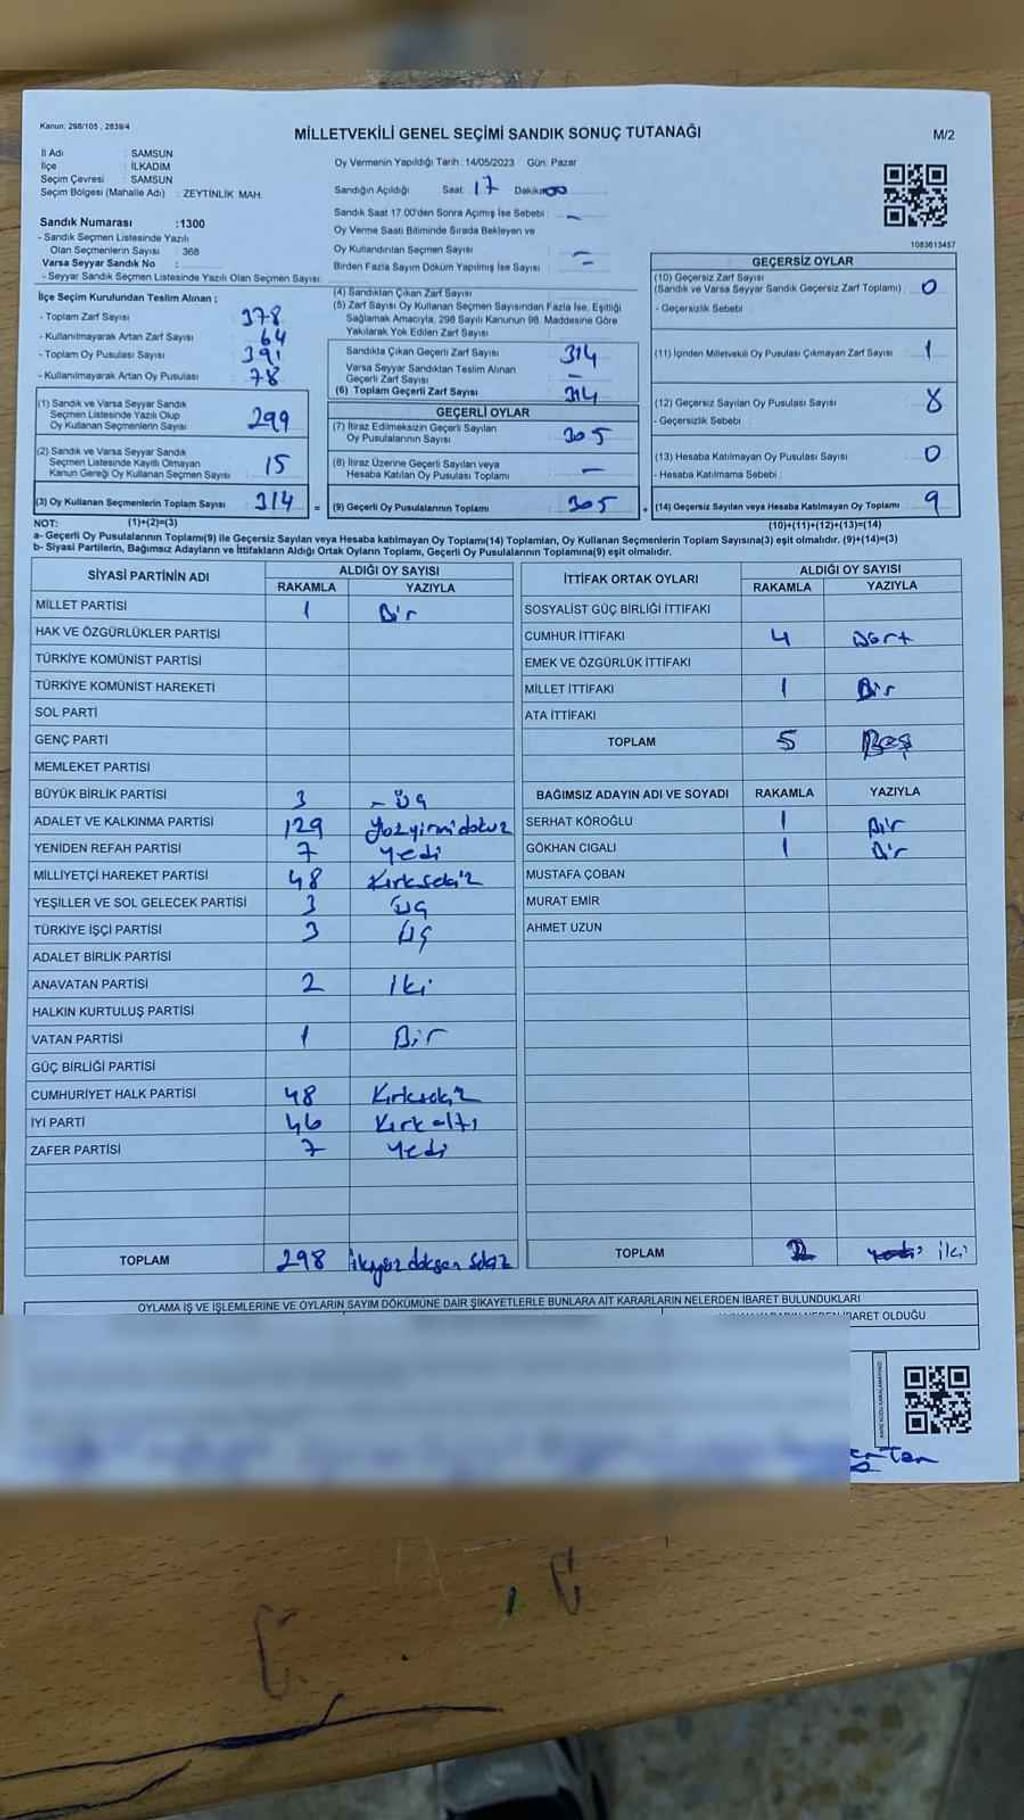 Kanun: 298/105 , 2839/4
MİLLETVEKİLİ GENEL SEÇİMİ SANDIK SONUÇ TUTANAĞI
M/2
İl Adı : SAMSUN
İlçe : İLKADIM
Seçim Çevresi : SAMSUN
Seçim Bölgesi (Mahalle Adı) : ZEYTİNLİK MAH.
Oy Vermenin Yapıldığı Tarih : 14/05/2023 Gün: Pazar
Sandığın Açıldığı Saat: 17 Dakika: 00
Sandık Saat 17.00'den Sonra Açımış İse Sebebi : -
Oy Verme Saati Bitiminde Sırada Bekleyen ve
Oy Kullandırılan Seçmen Sayısı -
Birden Fazla Sayım Döküm Yapılmış İse Sayısı : -
1083613457
Sandık Numarası :1300
- Sandık Seçmen Listesinde Yazılı
Olan Seçmenlerin Sayısı : 368
Varsa Seyyar Sandık No :
- Seyyar Sandık Seçmen Listesinde Yazılı Olan Seçmen Sayısı:
İlçe Seçim Kurulundan Teslim Alınan ;
- Toplam Zarf Sayısı 378
- Kullanılmayarak Artan Zarf Sayısı 64
- Toplam Oy Pusulası Sayısı 391
- Kullanılmayarak Artan Oy Pusulası 78
(1) Sandık ve Varsa Seyyar Sandık
Seçmen Listesinde Yazılı Olup
Oy Kullanan Seçmenlerin Sayısı 299
(2) Sandık ve Varsa Seyyar Sandık
Seçmen Listesinde Kayıtlı Olmayan
Kanun Gereği Oy Kullanan Seçmen Sayısı 15
(3) Oy Kullanan Seçmenlerin Toplam Sayısı 314 =
(4) Sandıktan Çıkan Zarf Sayısı
(5) Zarf Sayısı Oy Kullanan Seçmen Sayısından Fazla İse, Eşitliği
Sağlamak Amacıyla, 298 Sayılı Kanunun 98. Maddesine Göre
Yakılarak Yok Edilen Zarf Sayısı
Sandıkta Çıkan Geçerli Zarf Sayısı 314
Varsa Seyyar Sandıktan Teslim Alınan
Geçerli Zarf Sayısı -
(6) Toplam Geçerli Zarf Sayısı 314
GEÇERLİ OYLAR
(7) İtiraz Edilmeksizin Geçerli Sayılan
Oy Pusulalarının Sayısı 305
(8) İtiraz Üzerine Geçerli Sayılan veya
Hesaba Katılan Oy Pusulası Toplamı -
(9) Geçerli Oy Pusulalarının Toplamı 305 +
GEÇERSİZ OYLAR
(10) Geçersiz Zarf Sayısı
(Sandık ve Varsa Seyyar Sandık Geçersiz Zarf Toplamı) 0
- Geçersizlik Sebebi
(11) İçinden Milletvekili Oy Pusulası Çıkmayan Zarf Sayısı 1
(12) Geçersiz Sayılan Oy Pusulası Sayısı 8
- Geçersizlik Sebebi
(13) Hesaba Katılmayan Oy Pusulası Sayısı 0
- Hesaba Katılmama Sebebi
(14) Geçersiz Sayılan veya Hesaba Katılmayan Oy Toplamı 9
NOT: (1)+(2)=(3) (10)+(11)+(12)+(13)=(14)
a- Geçerli Oy Pusulalarının Toplamı(9) ile Geçersiz Sayılan veya Hesaba katılmayan Oy Toplamı(14) Toplamları, Oy Kullanan Seçmenlerin Toplam Sayısına(3) eşit olmalıdır. (9)+(14)=(3)
b- Siyasi Partilerin, Bağımsız Adayların ve İttifakların Aldığı Ortak Oyların Toplamı, Geçerli Oy Pusulalarının Toplamına(9) eşit olmalıdır.
SİYASİ PARTİNİN ADI ALDIĞI OY SAYISI
RAKAMLA YAZIYLA
MİLLET PARTİSİ 1 Bir
HAK VE ÖZGÜRLÜKLER PARTİSİ
TÜRKİYE KOMÜNİST PARTİSİ
TÜRKİYE KOMÜNİST HAREKETİ
SOL PARTİ
GENÇ PARTİ
MEMLEKET PARTİSİ
BÜYÜK BİRLİK PARTİSİ 3 - Üç
ADALET VE KALKINMA PARTİSİ 129 Yüzyirmidokuz
YENİDEN REFAH PARTİSİ 7 Yedi
MİLLİYETÇİ HAREKET PARTİSİ 48 Kırksekiz
YEŞİLLER VE SOL GELECEK PARTİSİ 3 üç
TÜRKİYE İŞÇİ PARTİSİ 3 Üç
ADALET BİRLİK PARTİSİ
ANAVATAN PARTİSİ 2 İki
HALKIN KURTULUŞ PARTİSİ
VATAN PARTİSİ 1 Bir
GÜÇ BİRLİĞİ PARTİSİ
CUMHURİYET HALK PARTİSİ 48 Kırksekiz
İYİ PARTİ 46 Kırkaltı
ZAFER PARTİSİ 7 Yedi
TOPLAM 298 İkiyüz doksan sekiz
İTTİFAK ORTAK OYLARI ALDIĞI OY SAYISI
RAKAMLA YAZIYLA
SOSYALİST GÜÇ BİRLİĞİ İTTİFAKI
CUMHUR İTTİFAKI 4 Dört
EMEK VE ÖZGÜRLÜK İTTİFAKI
MİLLET İTTİFAKI 1 Bir
ATA İTTİFAKI
TOPLAM 5 Beş
BAĞIMSIZ ADAYIN ADI VE SOYADI RAKAMLA YAZIYLA
SERHAT KÖROĞLU 1 Bir
GÖKHAN CIGALI 1 Bir
MUSTAFA ÇOBAN
MURAT EMİR
AHMET UZUN
TOPLAM 2 iki
OYLAMA İŞ VE İŞLEMLERİNE VE OYLARIN SAYIM DÖKÜMÜNE DAİR ŞİKAYETLERLE BUNLARA AİT KARARLARIN NELERDEN İBARET BULUNDUKLARI
İBARET OLDUĞU